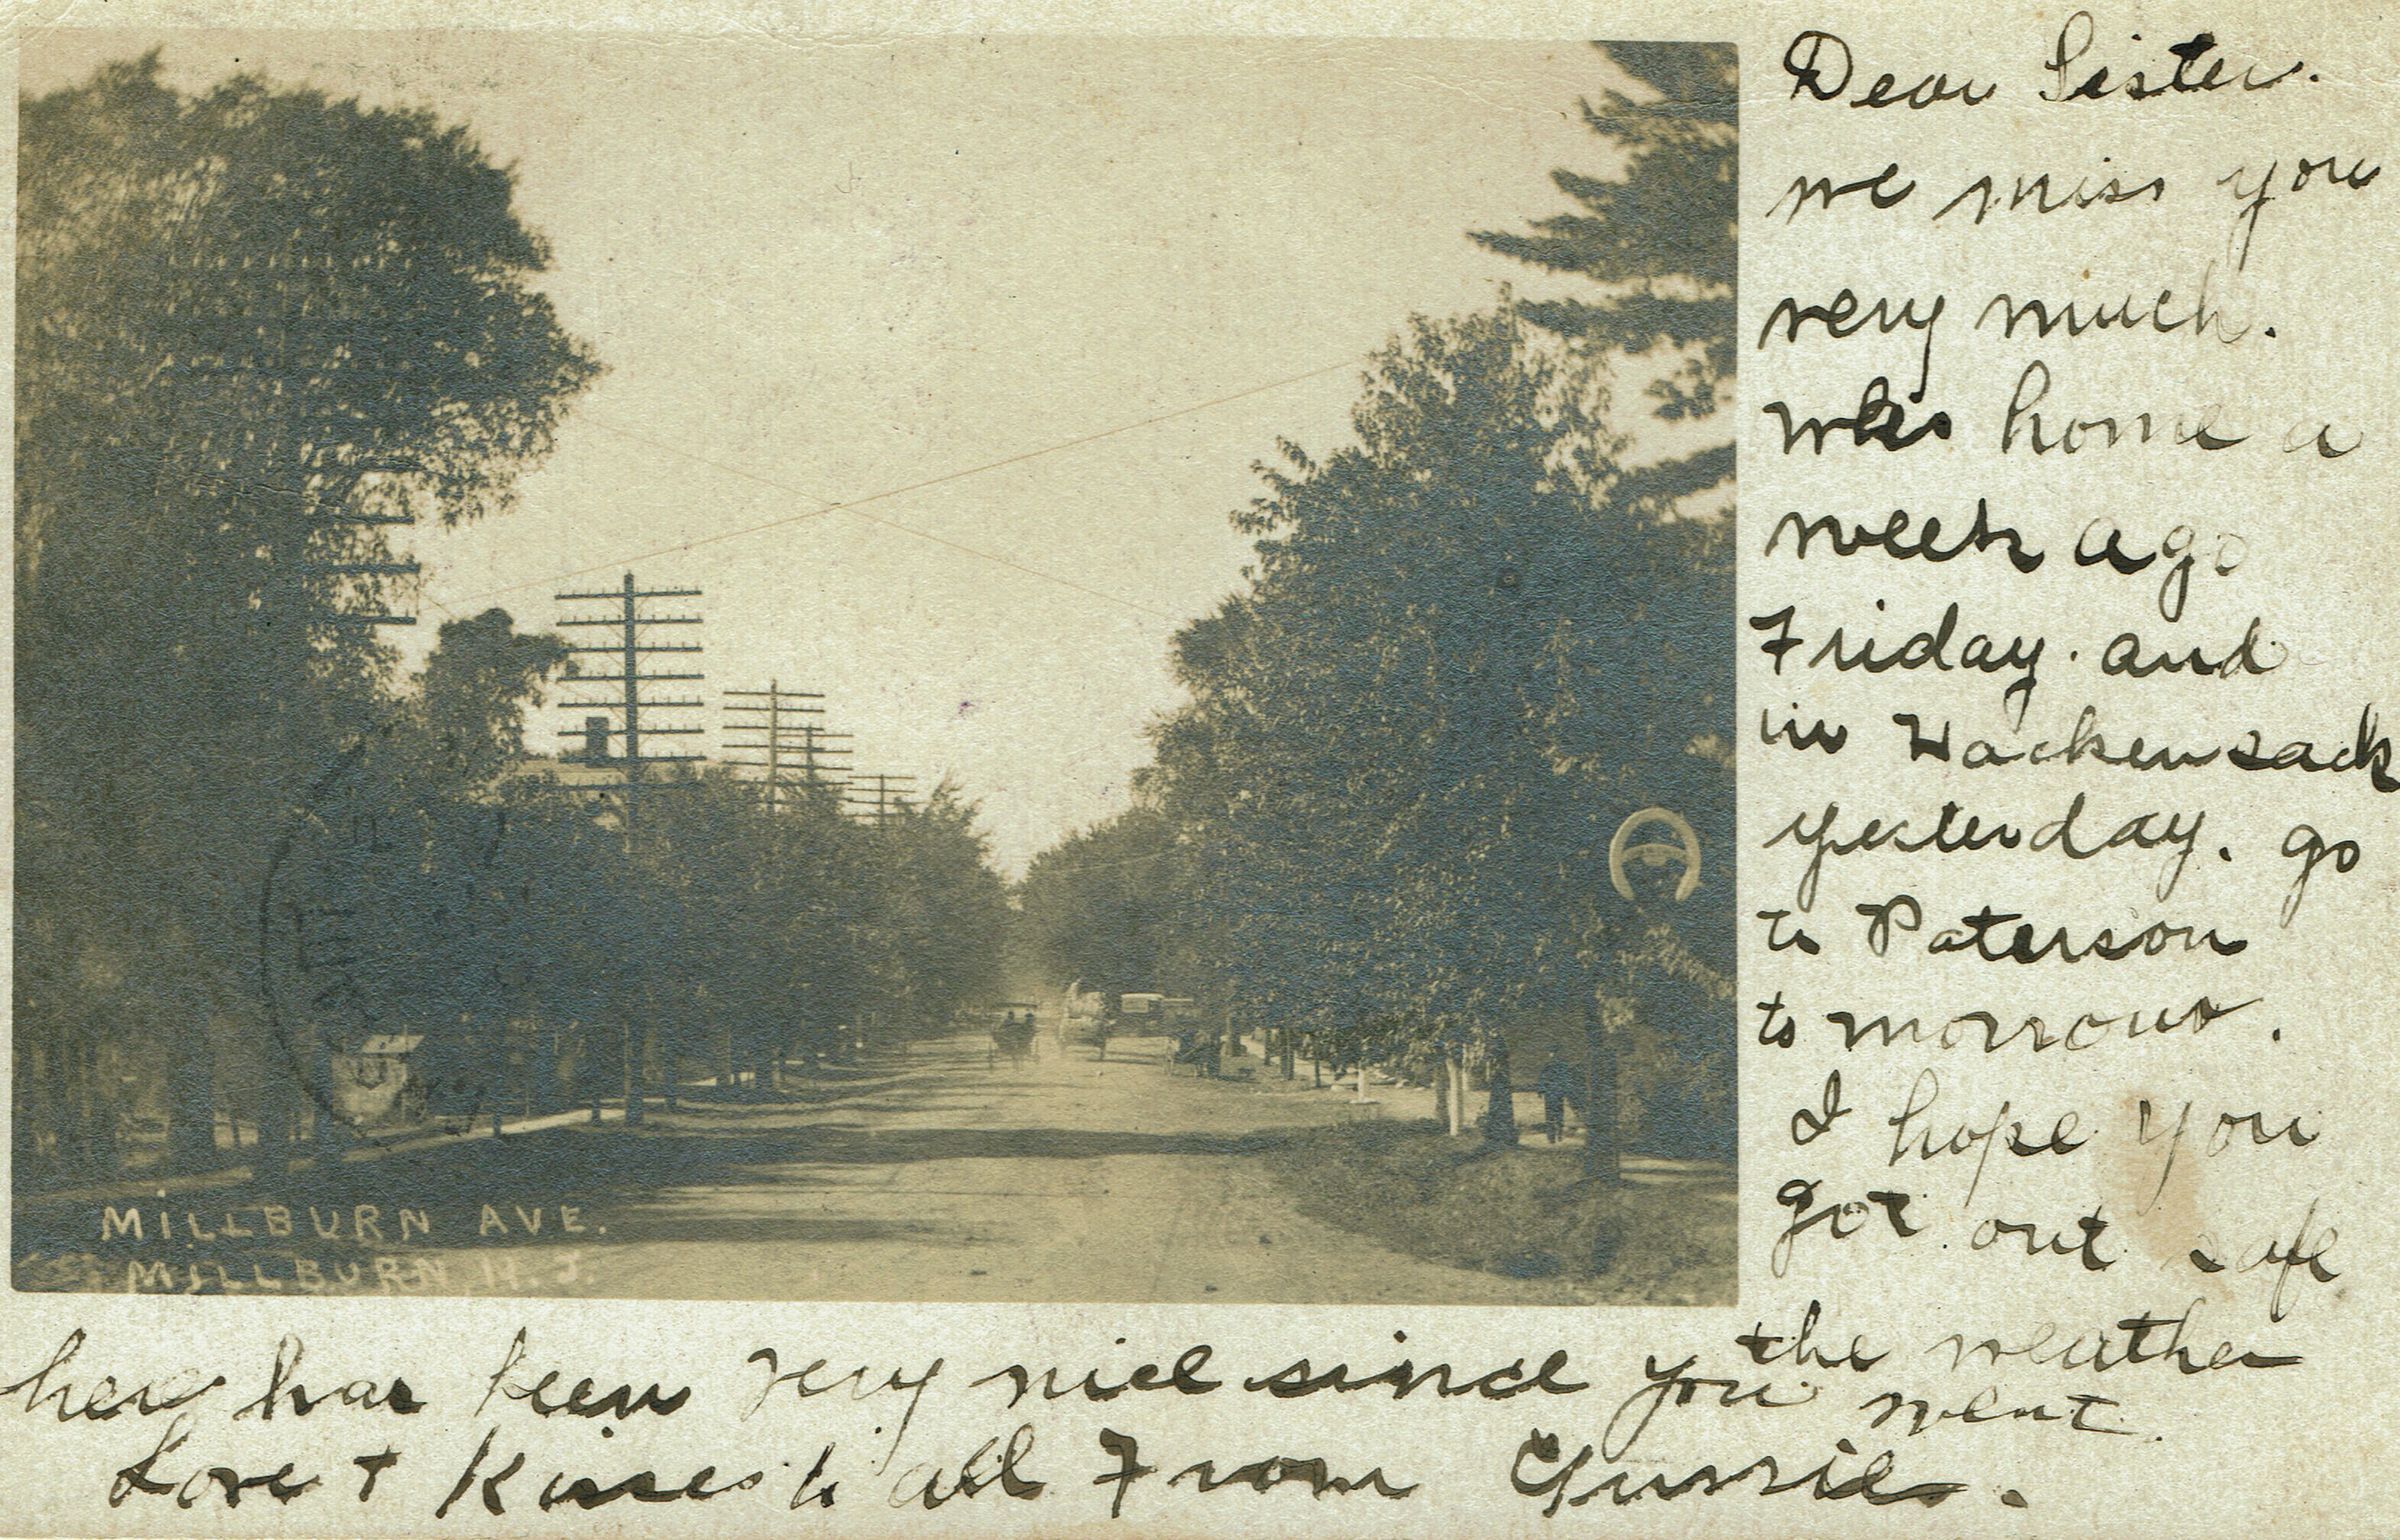 Dear Sister.
we miss you
very much.
was home a
week ago
Friday. and
in Hackensack
yesterday. go
to Paterson
to morrow.
I hope you
got out safe
the weather
here has been very nice since you went.
Love + Kisses to all From Gussie.
MILLBURN AVE.
MILLBURN N.J.